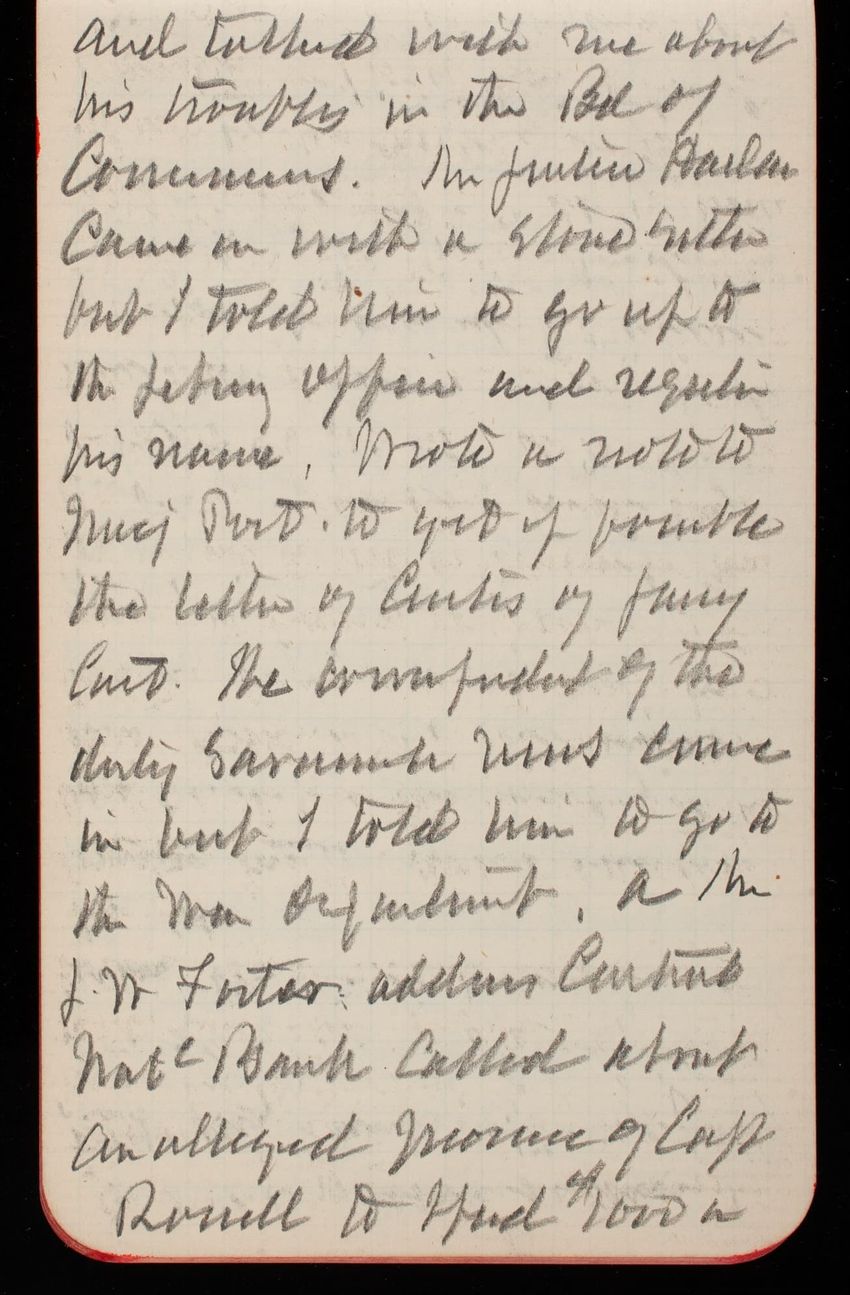 and talked with me about
his troubles in the Bd of
Commrs. Mr Justice Harlan
came in with a
but I told him to go up to
the office and register
his name. Wrote a note to
Maj Post. to get if possible
the letter of Curtis of
The correspondent of the
daily news came
in but I told him to go to
the War Department. A Mr
J. W Foster address Central
Natl Bank called about
an alleged promise of Capt
Rossell to of